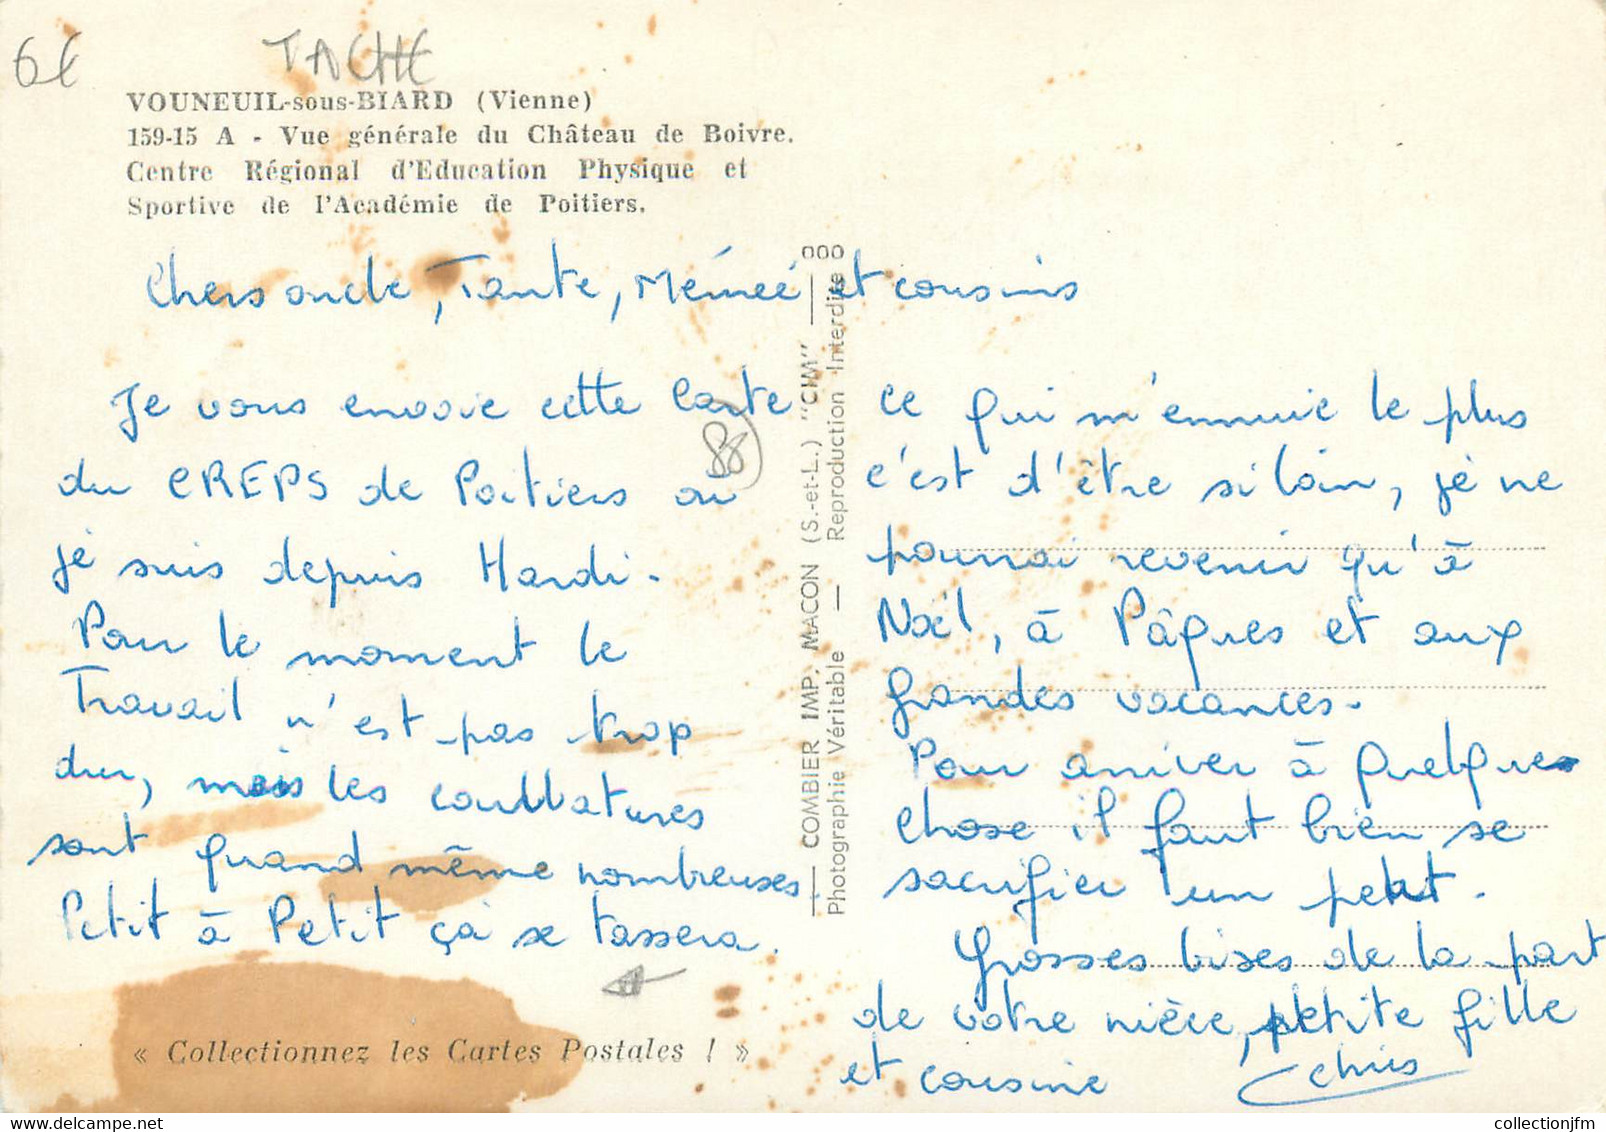 6€
TACHE
VOUNEUIL-sous-BIARD (Vienne)
159-15 A - Vue générale du Château de Boivre.
Centre Régional d'Education Physique et
Sportive de l'Académie de Poitiers.
Chers oncle, Tante, Mémée et cousins
Je vous envoie cette carte
du CREPS de Poitiers où
je suis depuis Mardi.
Pour le moment le
Travail n'est pas trop
dur, mais les courbatures
sont quand même nombreuses
Petit à Petit ça se tassera.
88
ce qui m'ennuie le plus
c'est d'être si loin, je ne
pourrai revenir qu'à
Noël, à Pâques et aux
grandes vacances.
Pour arriver à quelque
chose il faut bien se
sacrifier un petit.
Grosses bises de la part
de votre nièce, petite fille
et cousine
Chris
COMBIER IMP. MACON (S.-et-L.) "CIM"
Photographie Véritable — Reproduction Interdite
« Collectionnez les Cartes Postales ! »
collectionjfm